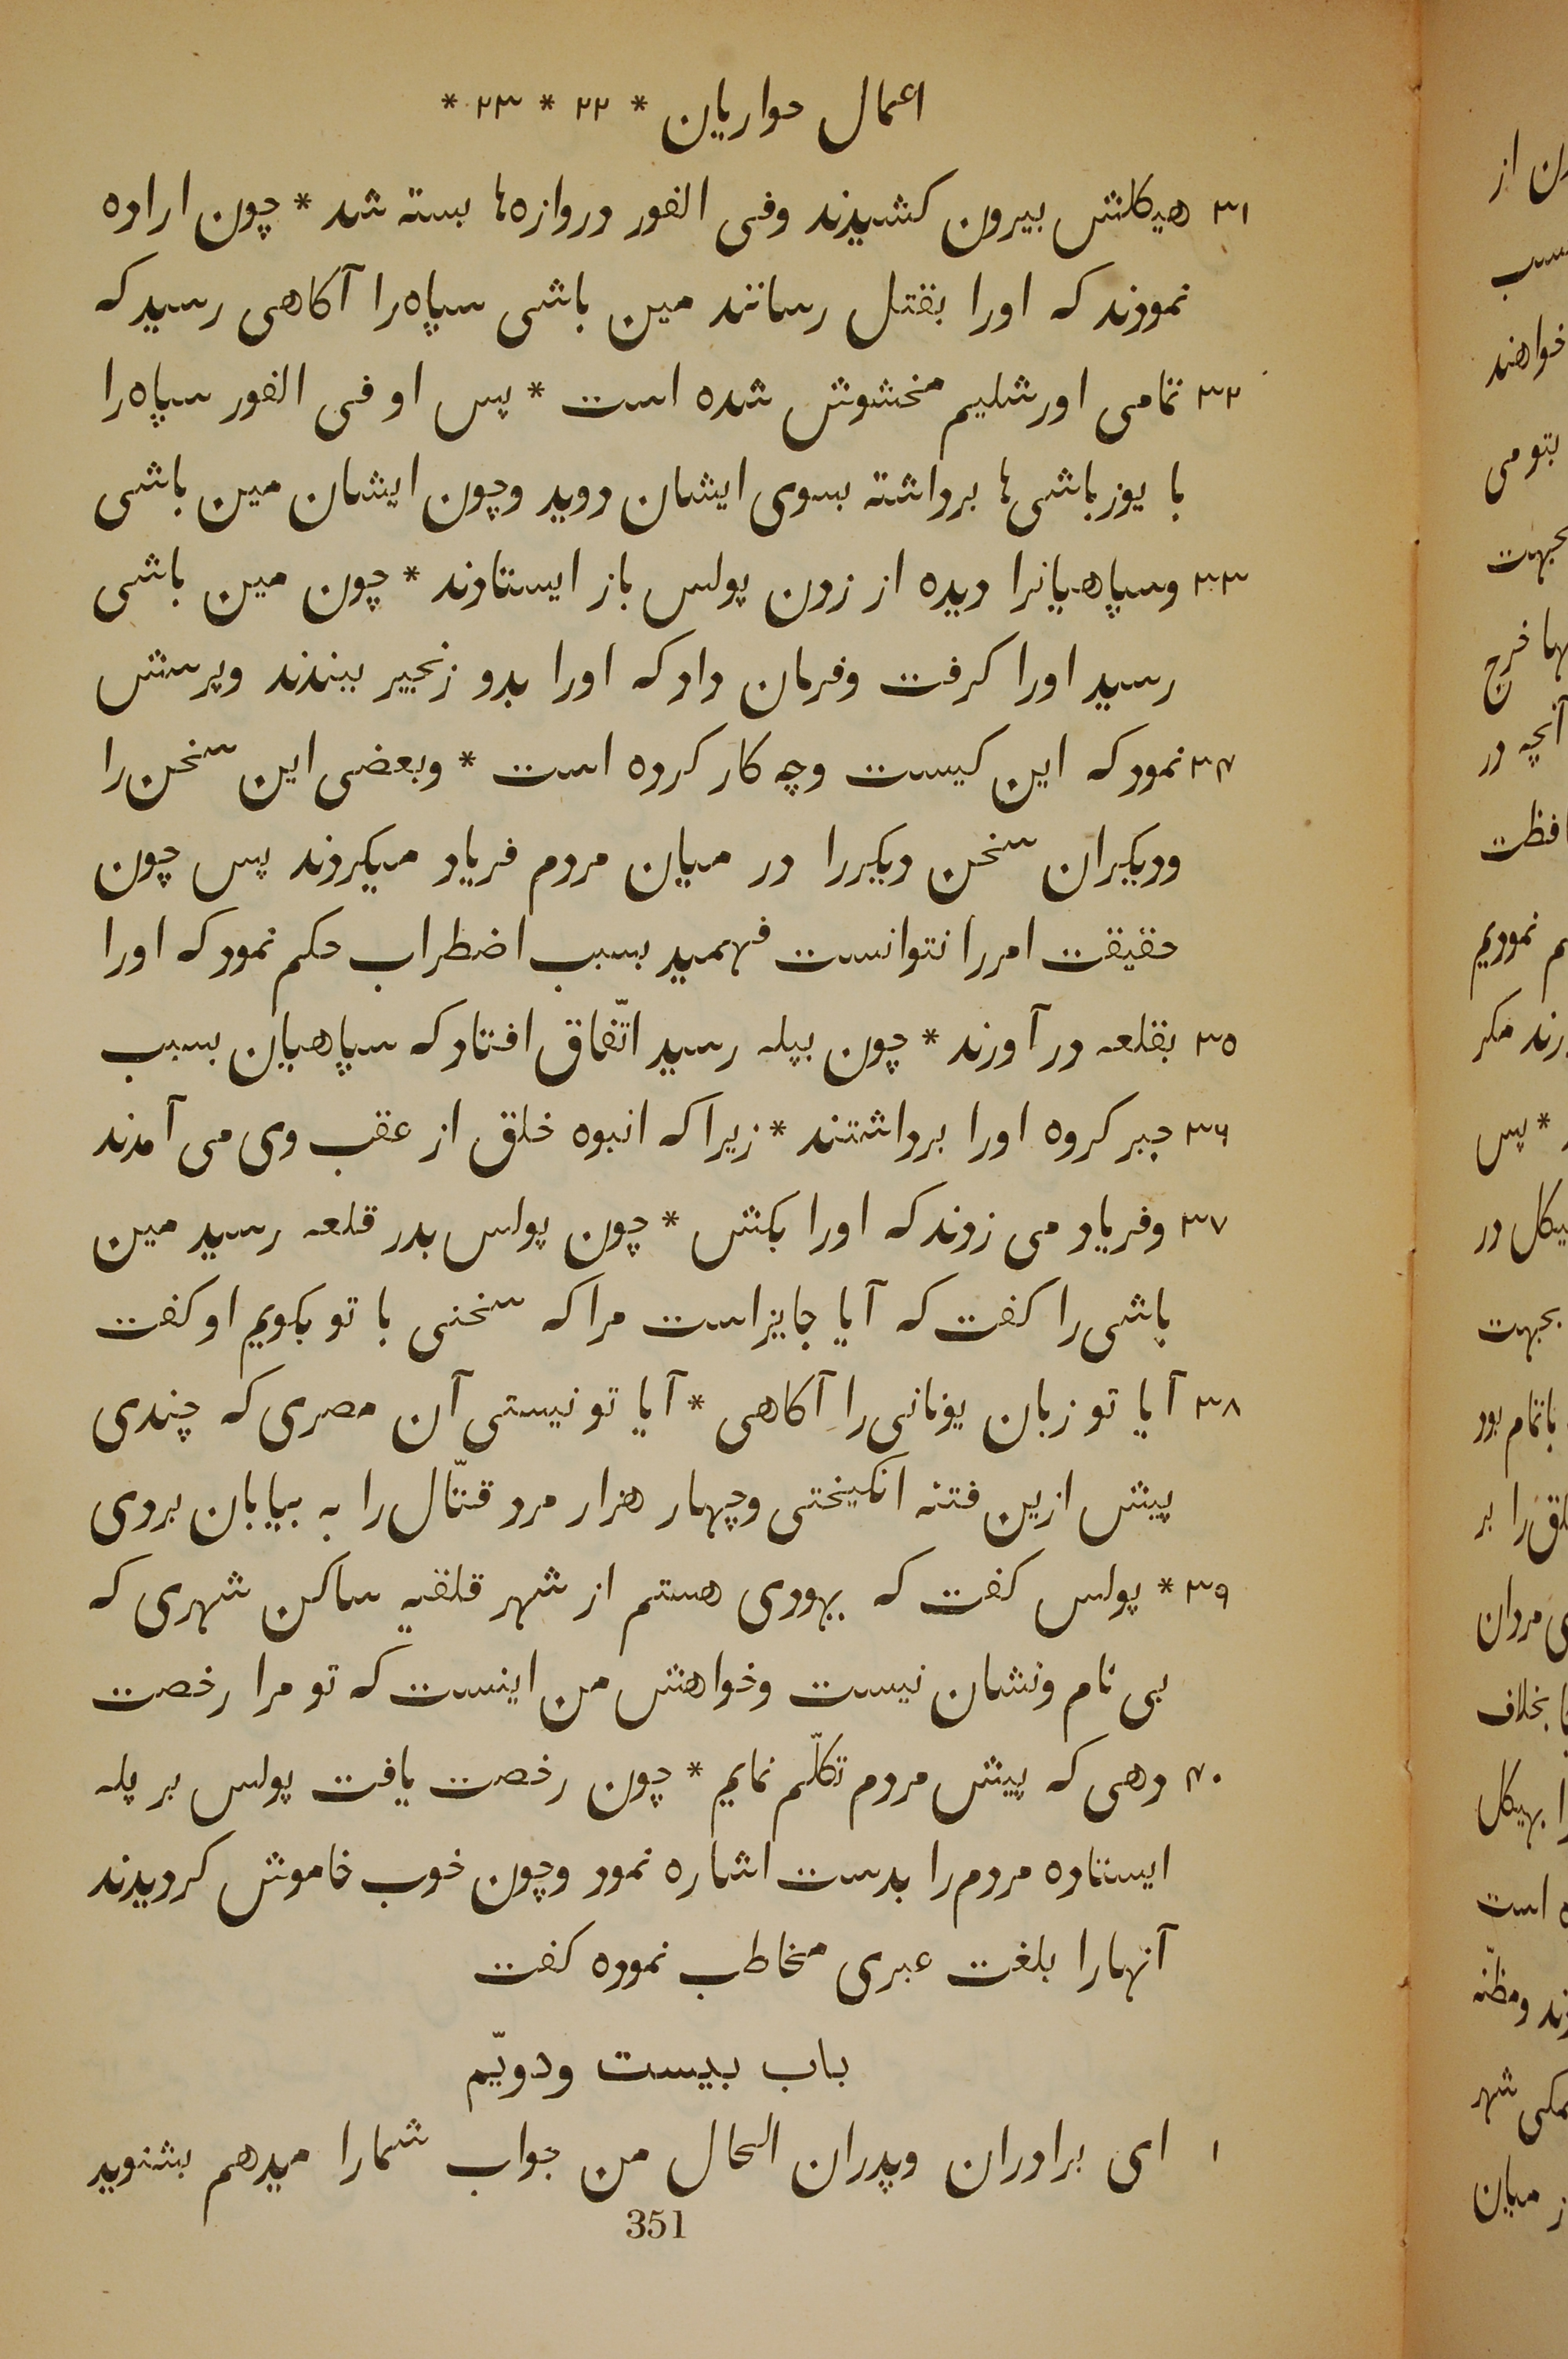 اعمال حواریان * ۲۲ * ۲۳ *
۳۱ هیکلش بیرون کشیدند وفی الفور دروازه‌ها بسته شد * چون اراده
نمودند که اورا بقتل رسانند مین باشی سپاه‌را آکاهی رسید که
۳۲ تمامی اورشلیم مخشوش شده است * پس او فی الفور سپاه‌را
با یوزباشی‌ها برداشته بسوی ایشان دوید وچون ایشان مین باشی
۳۳ وسپاهیانرا دیده از زدن پولس باز ایستادند * چون مین باشی
رسید اورا کرفت وفرمان داد که اورا بدو زنجیر ببندند وپرسش
۳۴ نمود که این کیست وچه کار کرده است * وبعضی این سخن را
ودیکران سخن دیکررا در میان مردم فریاد میکردند پس چون
حقیقت امررا نتوانست فهمید بسبب اضطراب حکم نمود که اورا
۳۵ بقلعه در آورند * چون بپله رسید اتّفاق افتاد که سپاهیان بسبب
۳۶ جبر کروه اورا برداشتند * زیرا که انبوه خلق از عقب وی می آمدند
۳۷ وفریاد می زدند که اورا بکش * چون پولس بدر قلعه رسید مین
باشی را کفت که آیا جایز است مرا که سخنی با تو بکویم او کفت
۳۸ آیا تو زبان یونانی را آکاهی * آیا تو نیستی آن مصری که چندی
پیش ازین فتنه انکیختی وچهار هزار مرد قتّال را به بیابان بردی
۳۹ * پولس کفت که یهودی هستم از شهر قلقیه ساکن شهری که
بی نام ونشان نیست وخواهش من اینست که تو مرا رخصت
۴۰ دهی که پیش مردم تکلّم نمایم * چون رخصت یافت پولس بر پله
ایستاده مردم را بدست اشاره نمود وچون خوب خاموش کردیدند
آنهارا بلغت عبری مخاطب نموده کفت
باب بیست ودویّم
۱ ای برادران وپدران الحال من جواب شمارا میدهم بشنوید
351